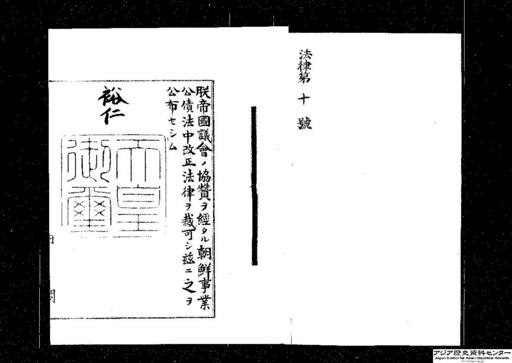 法律第十號
朕帝國議會ノ協賛ヲ經タル朝鮮事業
公債法中改正法律ヲ裁可シ茲ニ之ヲ
公布セシム
裕仁
天皇
御璽
アジア歴史資料センター
Japan Center for Asian Historical Records